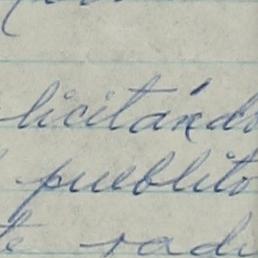 licitándo
pueblito
te radi